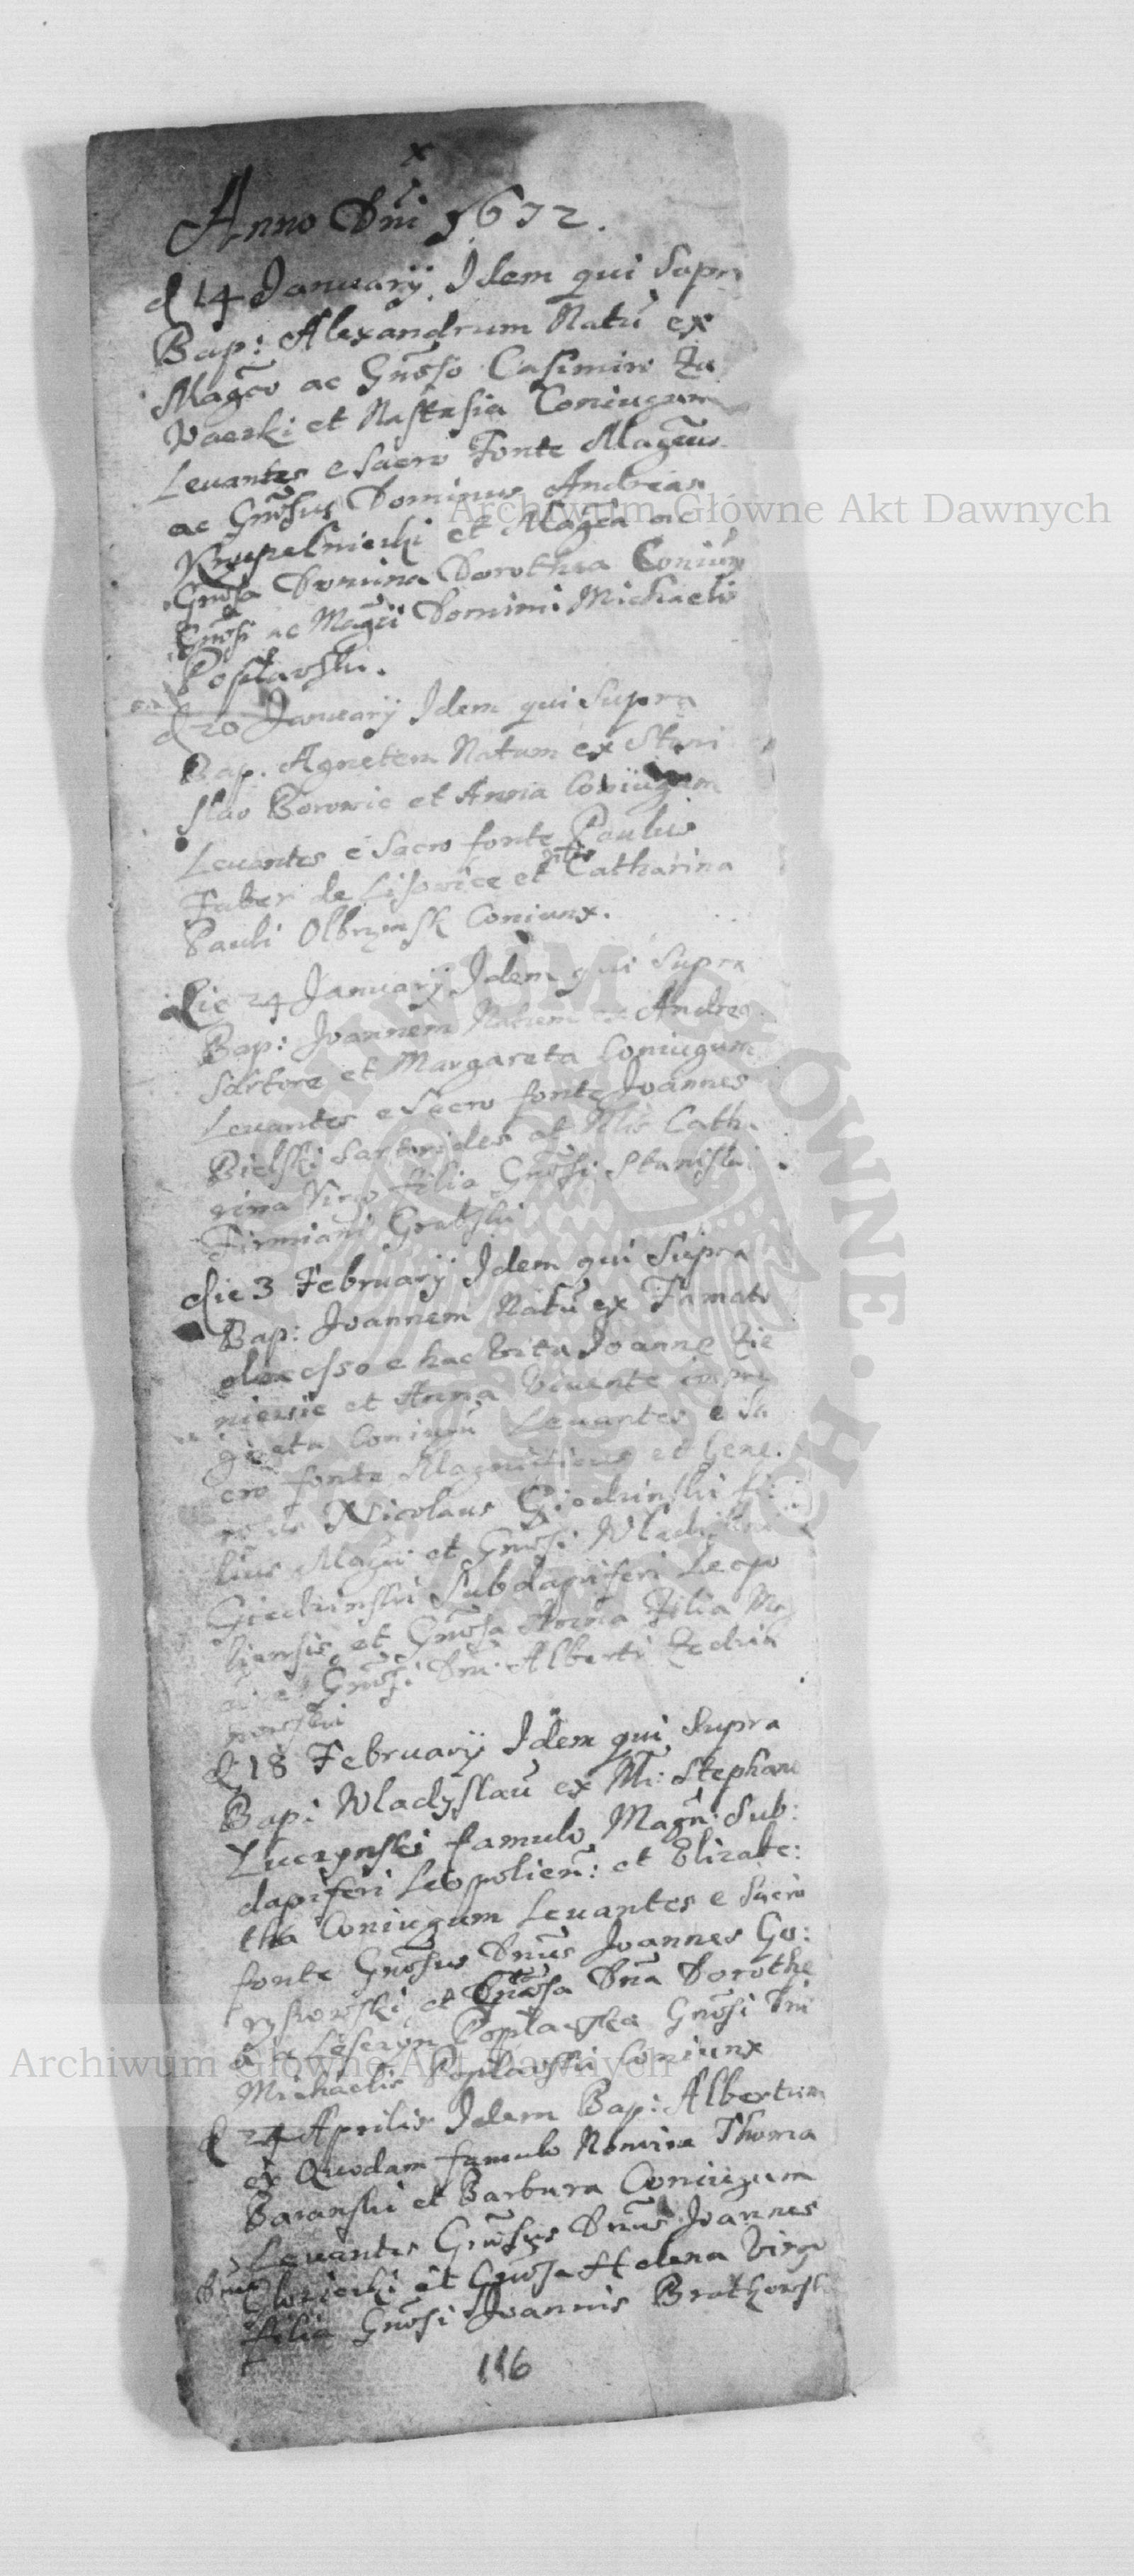 Anno Dni 1672.
d 14 Januarij Idem qui Supr
Bap: Alexandrum Natu ex
Magco ac Gnoso Casimiro Za
et Nastasia Coniugum
Leuantes e Sacro Fonte Magcus
ac Gnosus Dominus Andreas
et Magca ac
Gnosa Domina Dorothea Coniux
Gnosi ac Magci Domini Michaelis
Poplawski.
d 20 Januarij Idem qui Supra
Bap. Agnetem Natam ex Stani
slao Borowic et Anna Coniugum
Leuantes e Sacro fonte Paulus
Faber de Lisowice et Catharina
Pauli Olbrymsk Coniunx.
die 24 Januarij Idem qui Supra
Bap: Joannem Natum ex Andrea
Sartore et Margareta Coniugum
Leuantes e Sacro fonte Joannes
Bielski Sartorides et Catha
rina Virgo filia Gnosi Stanislai
Firmiani Grabski
die 3 Februarij Idem qui Supra
Bap: Joannem Natu ex Famato
e hac vita Joanne Zie
et Anna viuente
Coniugu Leuantes e Sa
cro fonte Magnificus et Gene
Nicolaus Giedzinski fi
lius Magci et Gnosi Wladislai
Giedzinski Subdapiferi Leopo
liensis et Gnosa Anna Filia Ma
et Gnosi Dni Alberti

d 18 Februarij Idem qui Supra
Bap: Wladyslau ex M: Stephano
Luczynski famulo Magn: Sub:
dapiferi Leopolien: et Elizabe:
tha Coniugum Leuantes e Sacro
fonte Gnosus Dnus Joannes Go:
rzkowski et Gnosa Dna Dorothe
a Poplawska Gnosi Dni
Michaelis Poplawski Coniunx
d 24 Aprilis Idem Bap: Albertum
ex Quodam famulo Nomine Thoma
Baranski et Barbara Coniugum
Leuantes Gnosus Dnus Joannes
et Gnosa Helena Virgo
filia Gnosi Joannis Bratkowsk
116
Archiwum Główne Akt Dawnych
Archiwum Główne Akt Dawnych